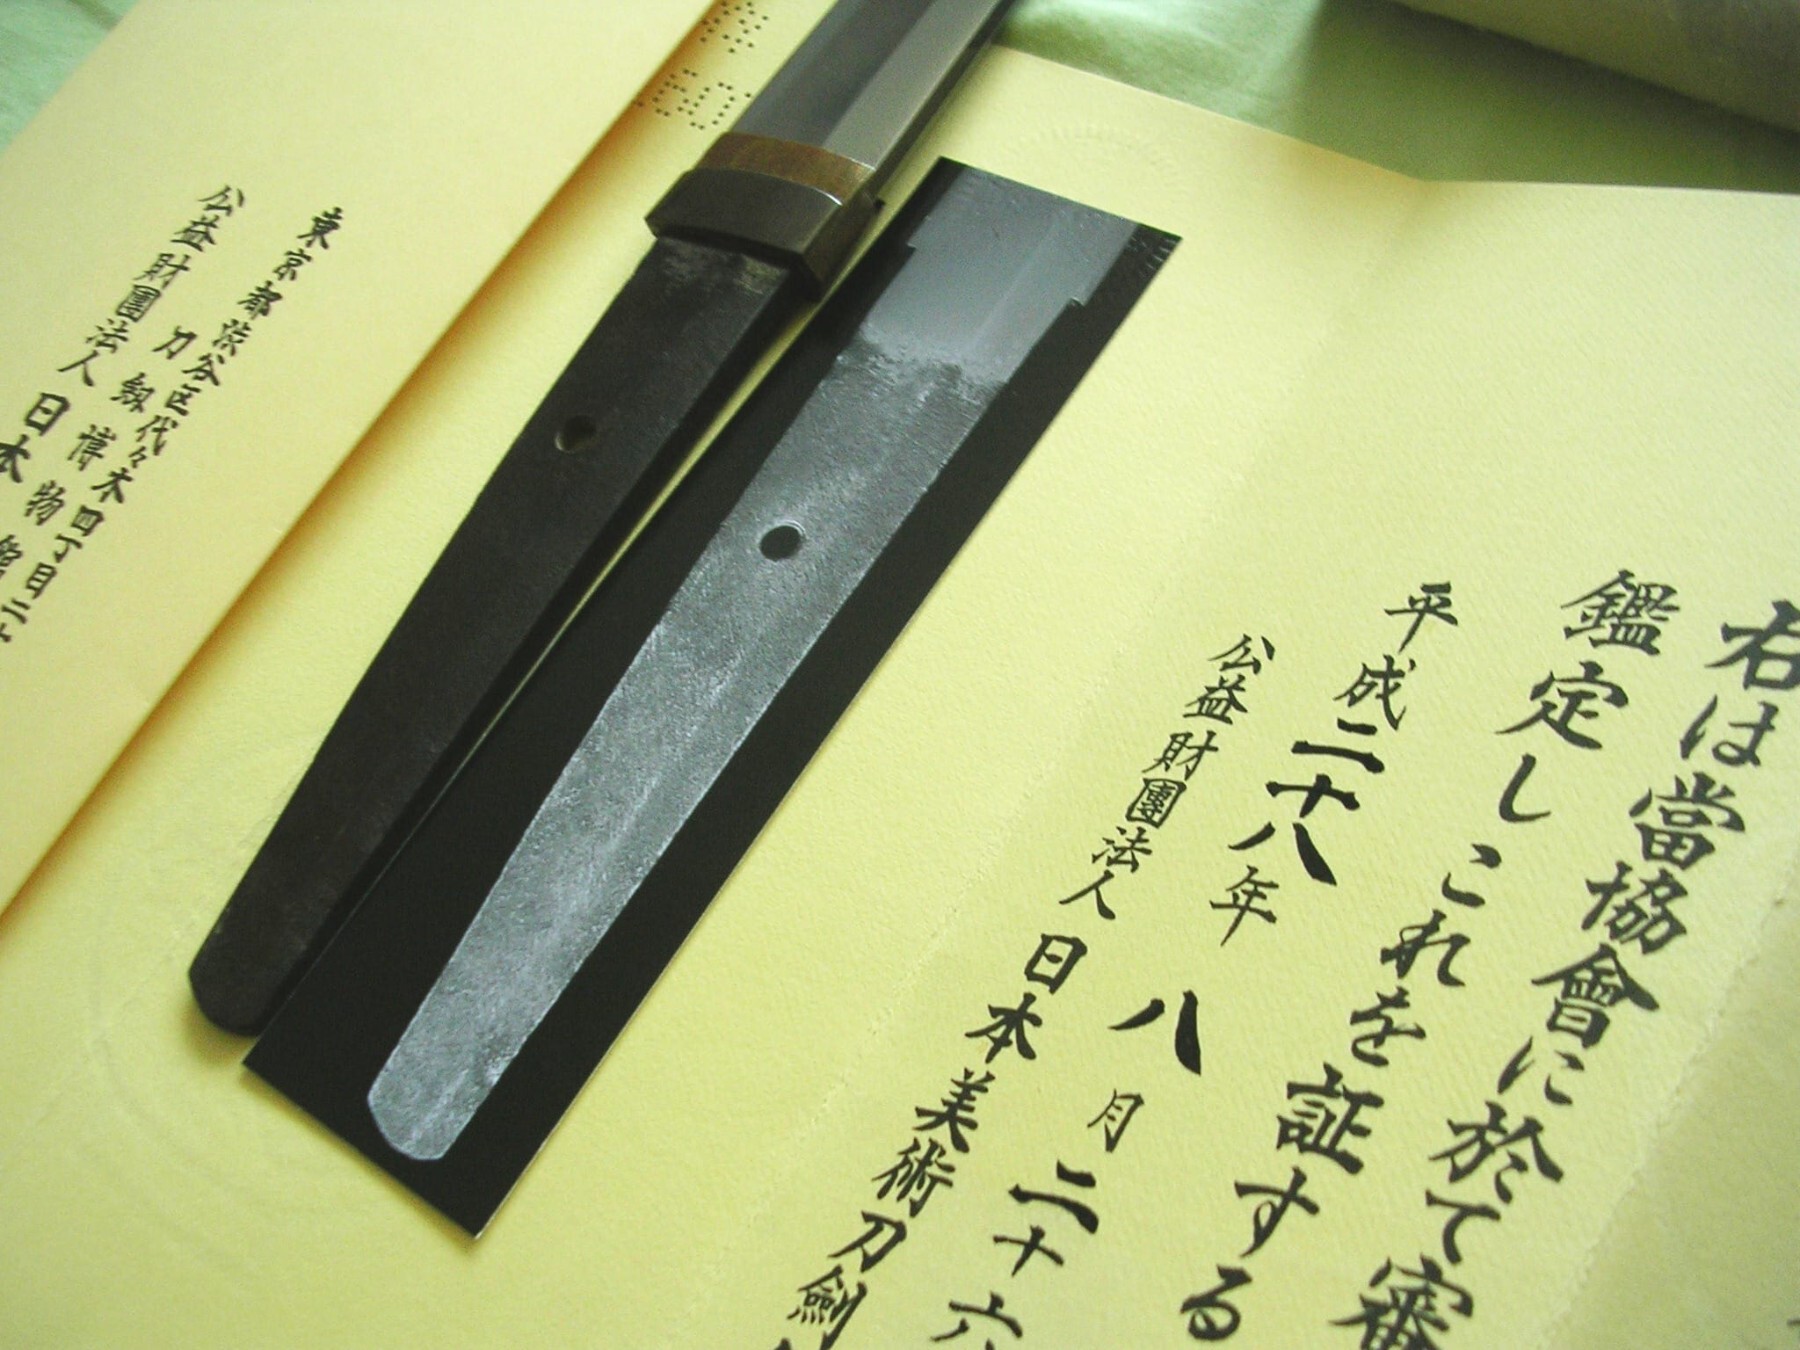 右は當協會に於て審
鑑定しこれを証する
平成二十八年 八月二十六
公益財團法人 日本美術刀劍
東京都渋谷区代々木四丁目二十
刀剣博物館
公益財團法人 日本